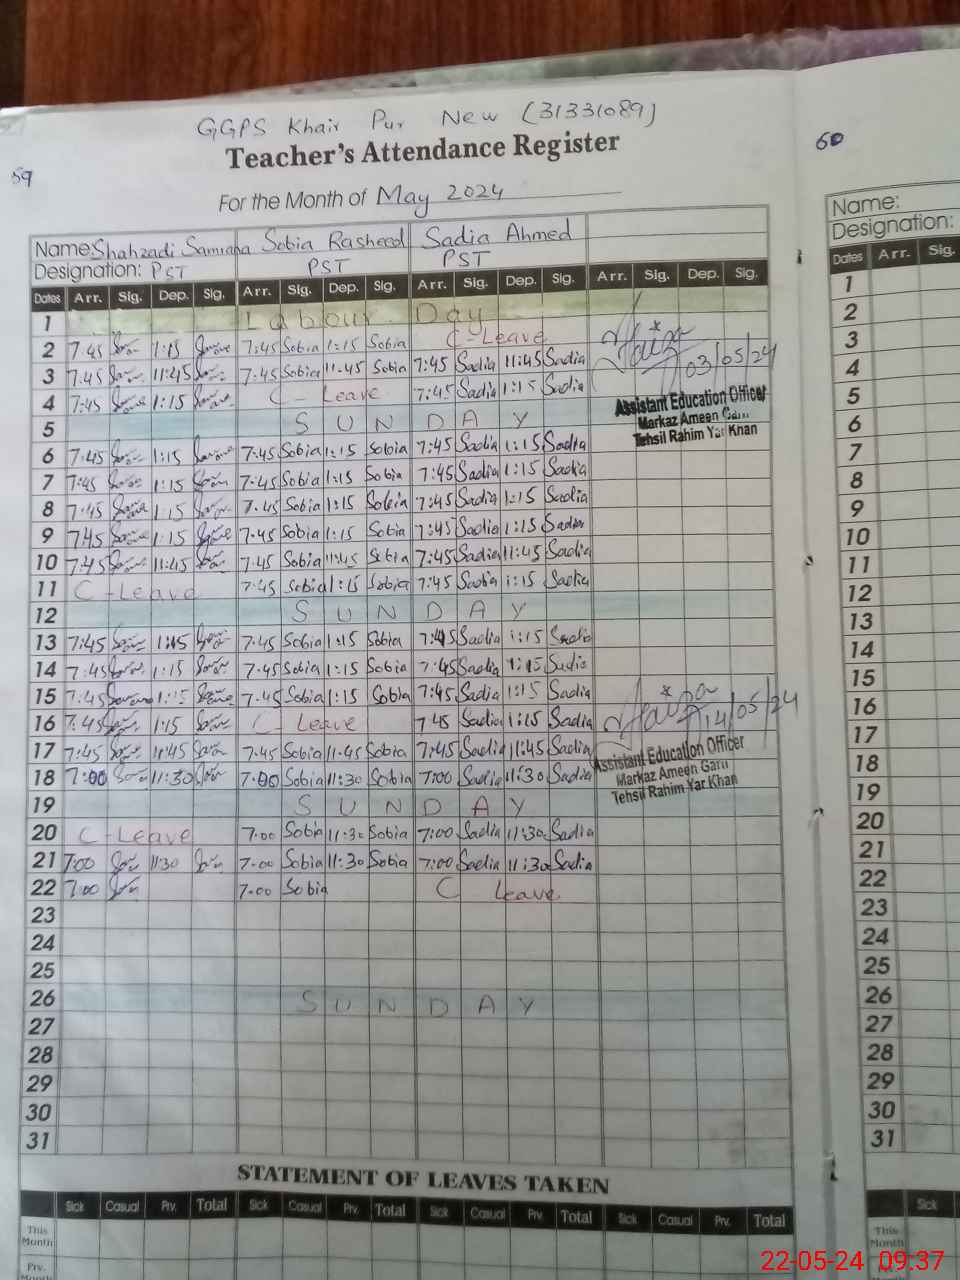 GGPS Khair Pur New (31331089)
59
Teacher's Attendance Register
60
For the Month of May 2024
Name Shahzadi Samrana Sobia Rasheed Sadia Ahmed
Designation: PST PST PST
Dates Arr. Sig. Dep. Sig. Arr. Sig. Dep. Sig. Arr. Sig. Dep. Sig. Arr. Sig. Dep. Sig.
1 Labour Day
2 7:45 1:15 7:45 Sobia 1:15 Sobia C-Leave
3 7:45 11:45 7:45 Sobia 11:45 Sobia 7:45 Sadia 11:45 Sadia 03/05/24
4 7:45 1:15 C-Leave 7:45 Sadia 1:15 Sadia
Assistant Education Officer
Markaz Ameen Garh
Tehsil Rahim Yar Khan
5 SUNDAY
6 7:45 1:15 7:45 Sobia 1:15 Sobia 7:45 Sadia 1:15 Sadia
7 7:45 1:15 7:45 Sobia 1:15 Sobia 7:45 Sadia 1:15 Sadia
8 7:45 1:15 7:45 Sobia 1:15 Sobia 7:45 Sadia 1:15 Sadia
9 7:45 1:15 7:45 Sobia 1:15 Sobia 7:45 Sadia 1:15 Sadia
10 7:45 11:45 7:45 Sobia 11:45 Sobia 7:45 Sadia 11:45 Sadia
11 C-Leave 7:45 Sobia 1:15 Sobia 7:45 Sadia 1:15 Sadia
12 SUNDAY
13 7:45 1:15 7:45 Sobia 1:15 Sobia 7:45 Sadia 1:15 Sadia
14 7:45 1:15 7:45 Sobia 1:15 Sobia 7:45 Sadia 1:15 Sadia
15 7:45 1:15 7:45 Sobia 1:15 Sobia 7:45 Sadia 1:15 Sadia
16 7:45 1:15 C-Leave 7:45 Sadia 1:15 Sadia 14/05/24
17 7:45 11:45 7:45 Sobia 11:45 Sobia 7:45 Sadia 11:45 Sadia
18 7:00 11:30 7:00 Sobia 11:30 Sobia 7:00 Sadia 11:30 Sadia
Assistant Education Officer
Markaz Ameen Garh
Tehsil Rahim Yar Khan
19 SUNDAY
20 C-Leave 7:00 Sobia 11:30 Sobia 7:00 Sadia 11:30 Sadia
21 7:00 11:30 7:00 Sobia 11:30 Sobia 7:00 Sadia 11:30 Sadia
22 7:00 7:00 Sobia C Leave
23
24
25
26 SUNDAY
27
28
29
30
31
STATEMENT OF LEAVES TAKEN
Sick Casual Prv. Total Sick Casual Prv. Total Sick Casual Prv. Total Sick Casual Prv. Total
This Month
Prv. Month
Name:
Designation:
Dates Arr. Sig.
1
2
3
4
5
6
7
8
9
10
11
12
13
14
15
16
17
18
19
20
21
22
23
24
25
26
27
28
29
30
31
Sick
This Month
Prv.
22-05-24 09:37